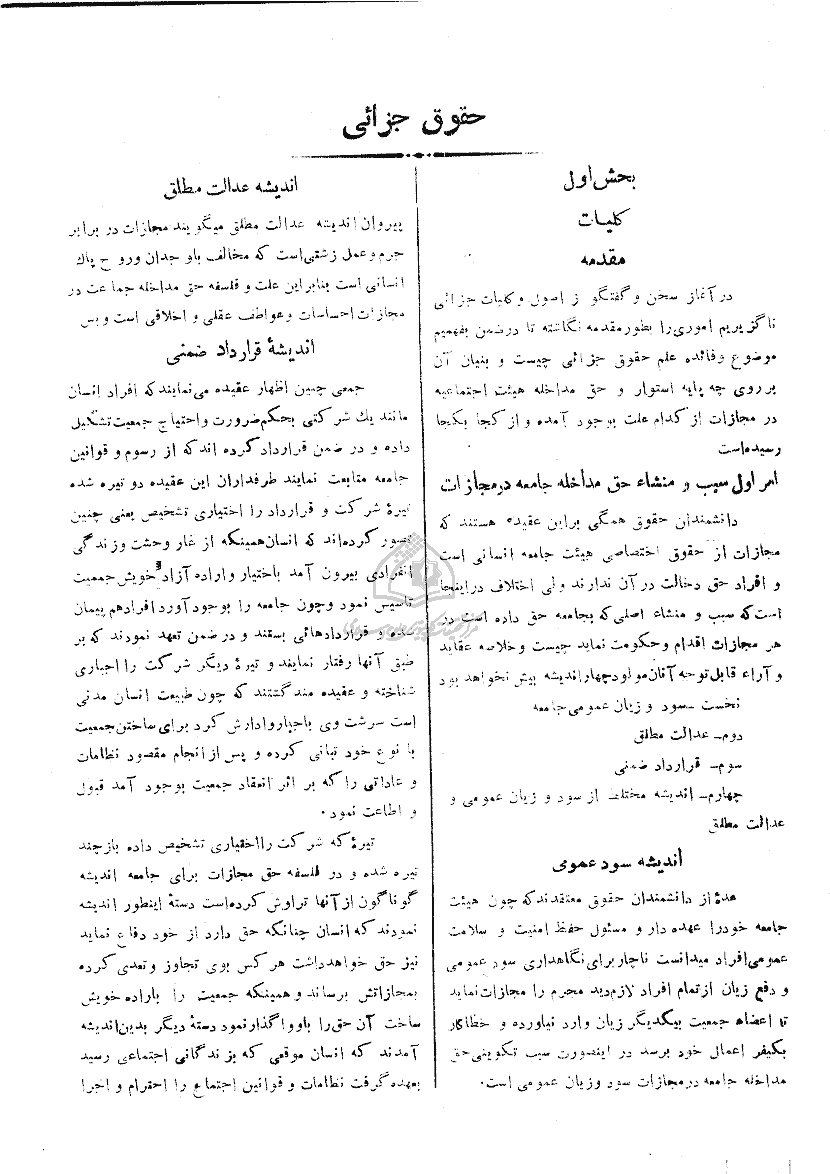 حقوق جزائی
بخش اول
کلیات
مقدمه
در آغاز سخن و گفتگو از اصول و کلیات جزائی
ناگزیریم اموری را بطور مقدمه نگاشته تا در ضمن بفهمیم
موضوع و فائده علم حقوق جزائی چیست و بنیان آن
بر روی چه پایه استوار و حق مداخله هیئت اجتماعیه
در مجازات از کدام علت بوجود آمده و از کجا بکجا
رسیده‌است
امر اول سبب و منشاء حق مداخله جامعه در مجازات
دانشمندان حقوق همگی براین عقیده هستند که
مجازات از حقوق اختصاصی هیئت جامعه انسانی است
و افراد حق دخالت در آن ندارند ولی اختلاف دراینجا
است‌که سبب و منشاء اصلی‌که بجامعه حق داده است در
هر مجازات اقدام و حکومت نماید چیست و خلاصه عقاید
و آراء قابل توجه آنان مولود چهار اندیشه بیش نخواهد بود
نخست ـ سود و زیان عمومی جامعه
دوم ـ عدالت مطلق
سوم ـ قرارداد ضمنی
چهارم ـ اندیشه مختلط از سود و زیان عمومی و
عدالت مطلق
اندیشه سود عموی
عدۀ از دانشمندان حقوق معتقدند‌که چون هیئت
جامعه خودرا عهده دار و مسئول حفظ امنیت و سلامت
عمومی افراد میدانست ناچار برای نگاهداری سود عمومی
و دفع زیان از تمام افراد لازم دید مجرم را مجازات نماید
تا اعضاء جمعیت بیکدیگر زیان وارد نیاورده و خطاکار
بکیفر اعمال خود برسد در اینصورت سبب تکوینی حق
مداخله جامعه در مجازات سود و زیان عمومی است.
اندیشه عدالت مطلق
پیروان اندیشه عدالت مطلق میگویند مجازات در برابر
جرم و عمل زشتی‌است که مخالف با وجدان و روح پاك
انسانی است بنابراین علت و فلسفه حق مداخله جماعت در
مجازات احساسات و عواطف عقلی و اخلاقی است و بس
اندیشۀ قرارداد ضمنی
جمعی چنین اظهار عقیده می‌نمایند‌که افراد انسان
مانند یك شرکتی بحکم ضرورت و احتیاج جمعیت تشکیل
داده و در ضمن قرارداد کرده اند که از رسوم و قوانین
جامعه متابعت نمایند طرفداران این عقیده دو تیره شده
تیرۀ شرکت و قرارداد را اختیاری تشخیص یعنی چنین
تصور کرده‌اند که انسان همینکه از غار وحشت و زندگی
انفرادی بیرون آمد باختیار و اراده آزاد خویش جمعیت
تاسیس نمود و چون جامعه را بوجود آورد افراد هم پیمان
شده و قراردادهائی بستند و در ضمن تعهد نمودند که بر
طبق آنها رفتار نمایند و تیرۀ دیگر شرکت را اجباری
شناخته و عقیده مند گشتند که چون طبیعت انسان مدنی
است سرشت وی باجبار وادارش کرد برای ساختن جمعیت
با نوع خود تبانی کرده و پس از انجام مقصود نظامات
و عاداتی را که بر اثر انعقاد جمعیت بوجود آمد قبول
و اطاعت نمود.
تیرۀ که شرکت را اختیاری تشخیص داده باز چند
تیره شده و در فلسفه حق مجازات برای جامعه اندیشه
گوناگون از آنها تراوش کرده‌است دستۀ اینطور اندیشه
نمودند که انسان چنانکه حق دارد از خود دفاع نماید
نیز حق خواهد داشت هر کس بوی تجاوز و تعدی کرده
بمجازاتش برساند و همینکه جمعیت را باراده خویش
ساخت آن حق را باو واگذار نمود دستۀ دیگر بدین اندیشه
آمدند که انسان موقعی که بزندگانی اجتماعی رسید
بعهده گرفت نظامات و قوانین اجتماع را احترام و اجرا